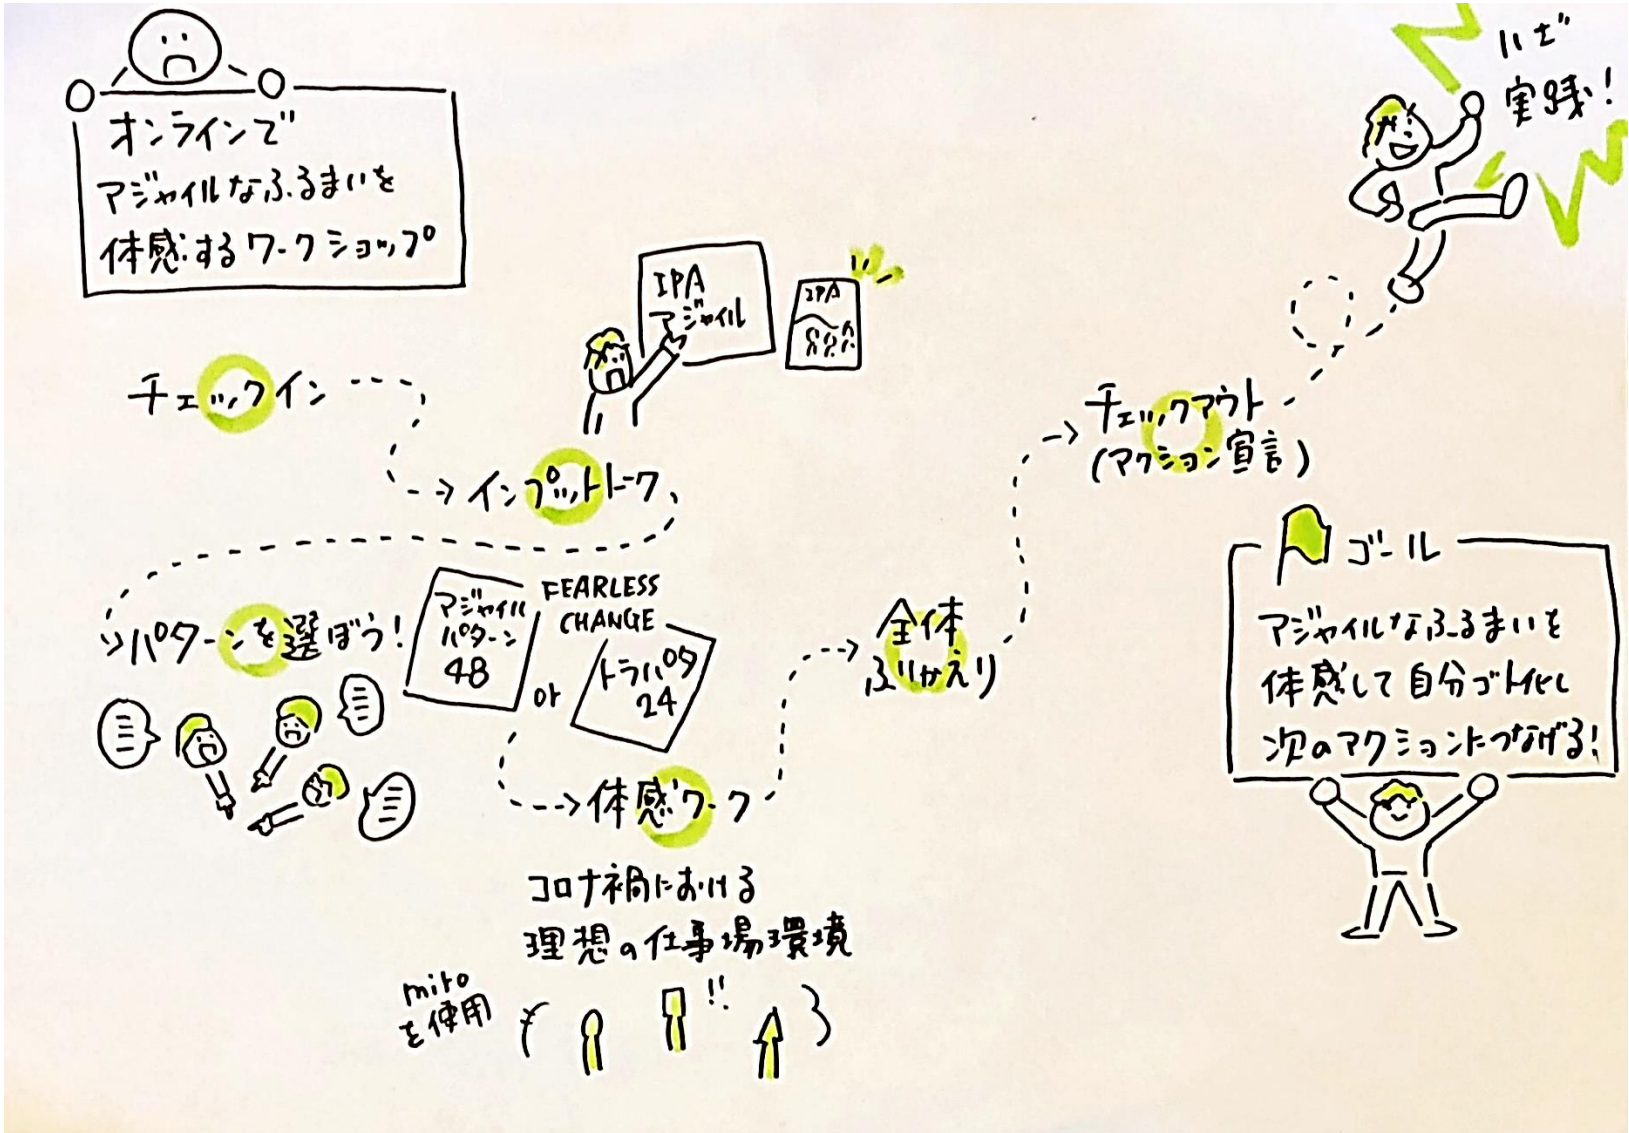 オンラインで
アジャイルなふるまいを
体感するワークショップ
チェックイン
インプットトーク
IPA
アジャイル
IPA
パターンを選ぼう!
アジャイル
パターン
48
FEARLESS
CHANGE
or
トラパタ
24
体感ワーク
コロナ禍における
理想の仕事場環境
miro
を使用
!!
全体
ふりかえり
チェックアウト
(アクション宣言)
いざ
実践!
ゴール
アジャイルなふるまいを
体感して自分ゴト化し
次のアクションにつなげる!